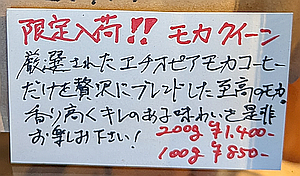 限定入荷!! モカクイーン
厳選されたエチオピアモカコーヒー
だけを贅沢にブレンドした至高のモカ。
香り高くキレのある味わいを是非
お楽しみ下さい! 200g ¥1.400-
100g ¥850-